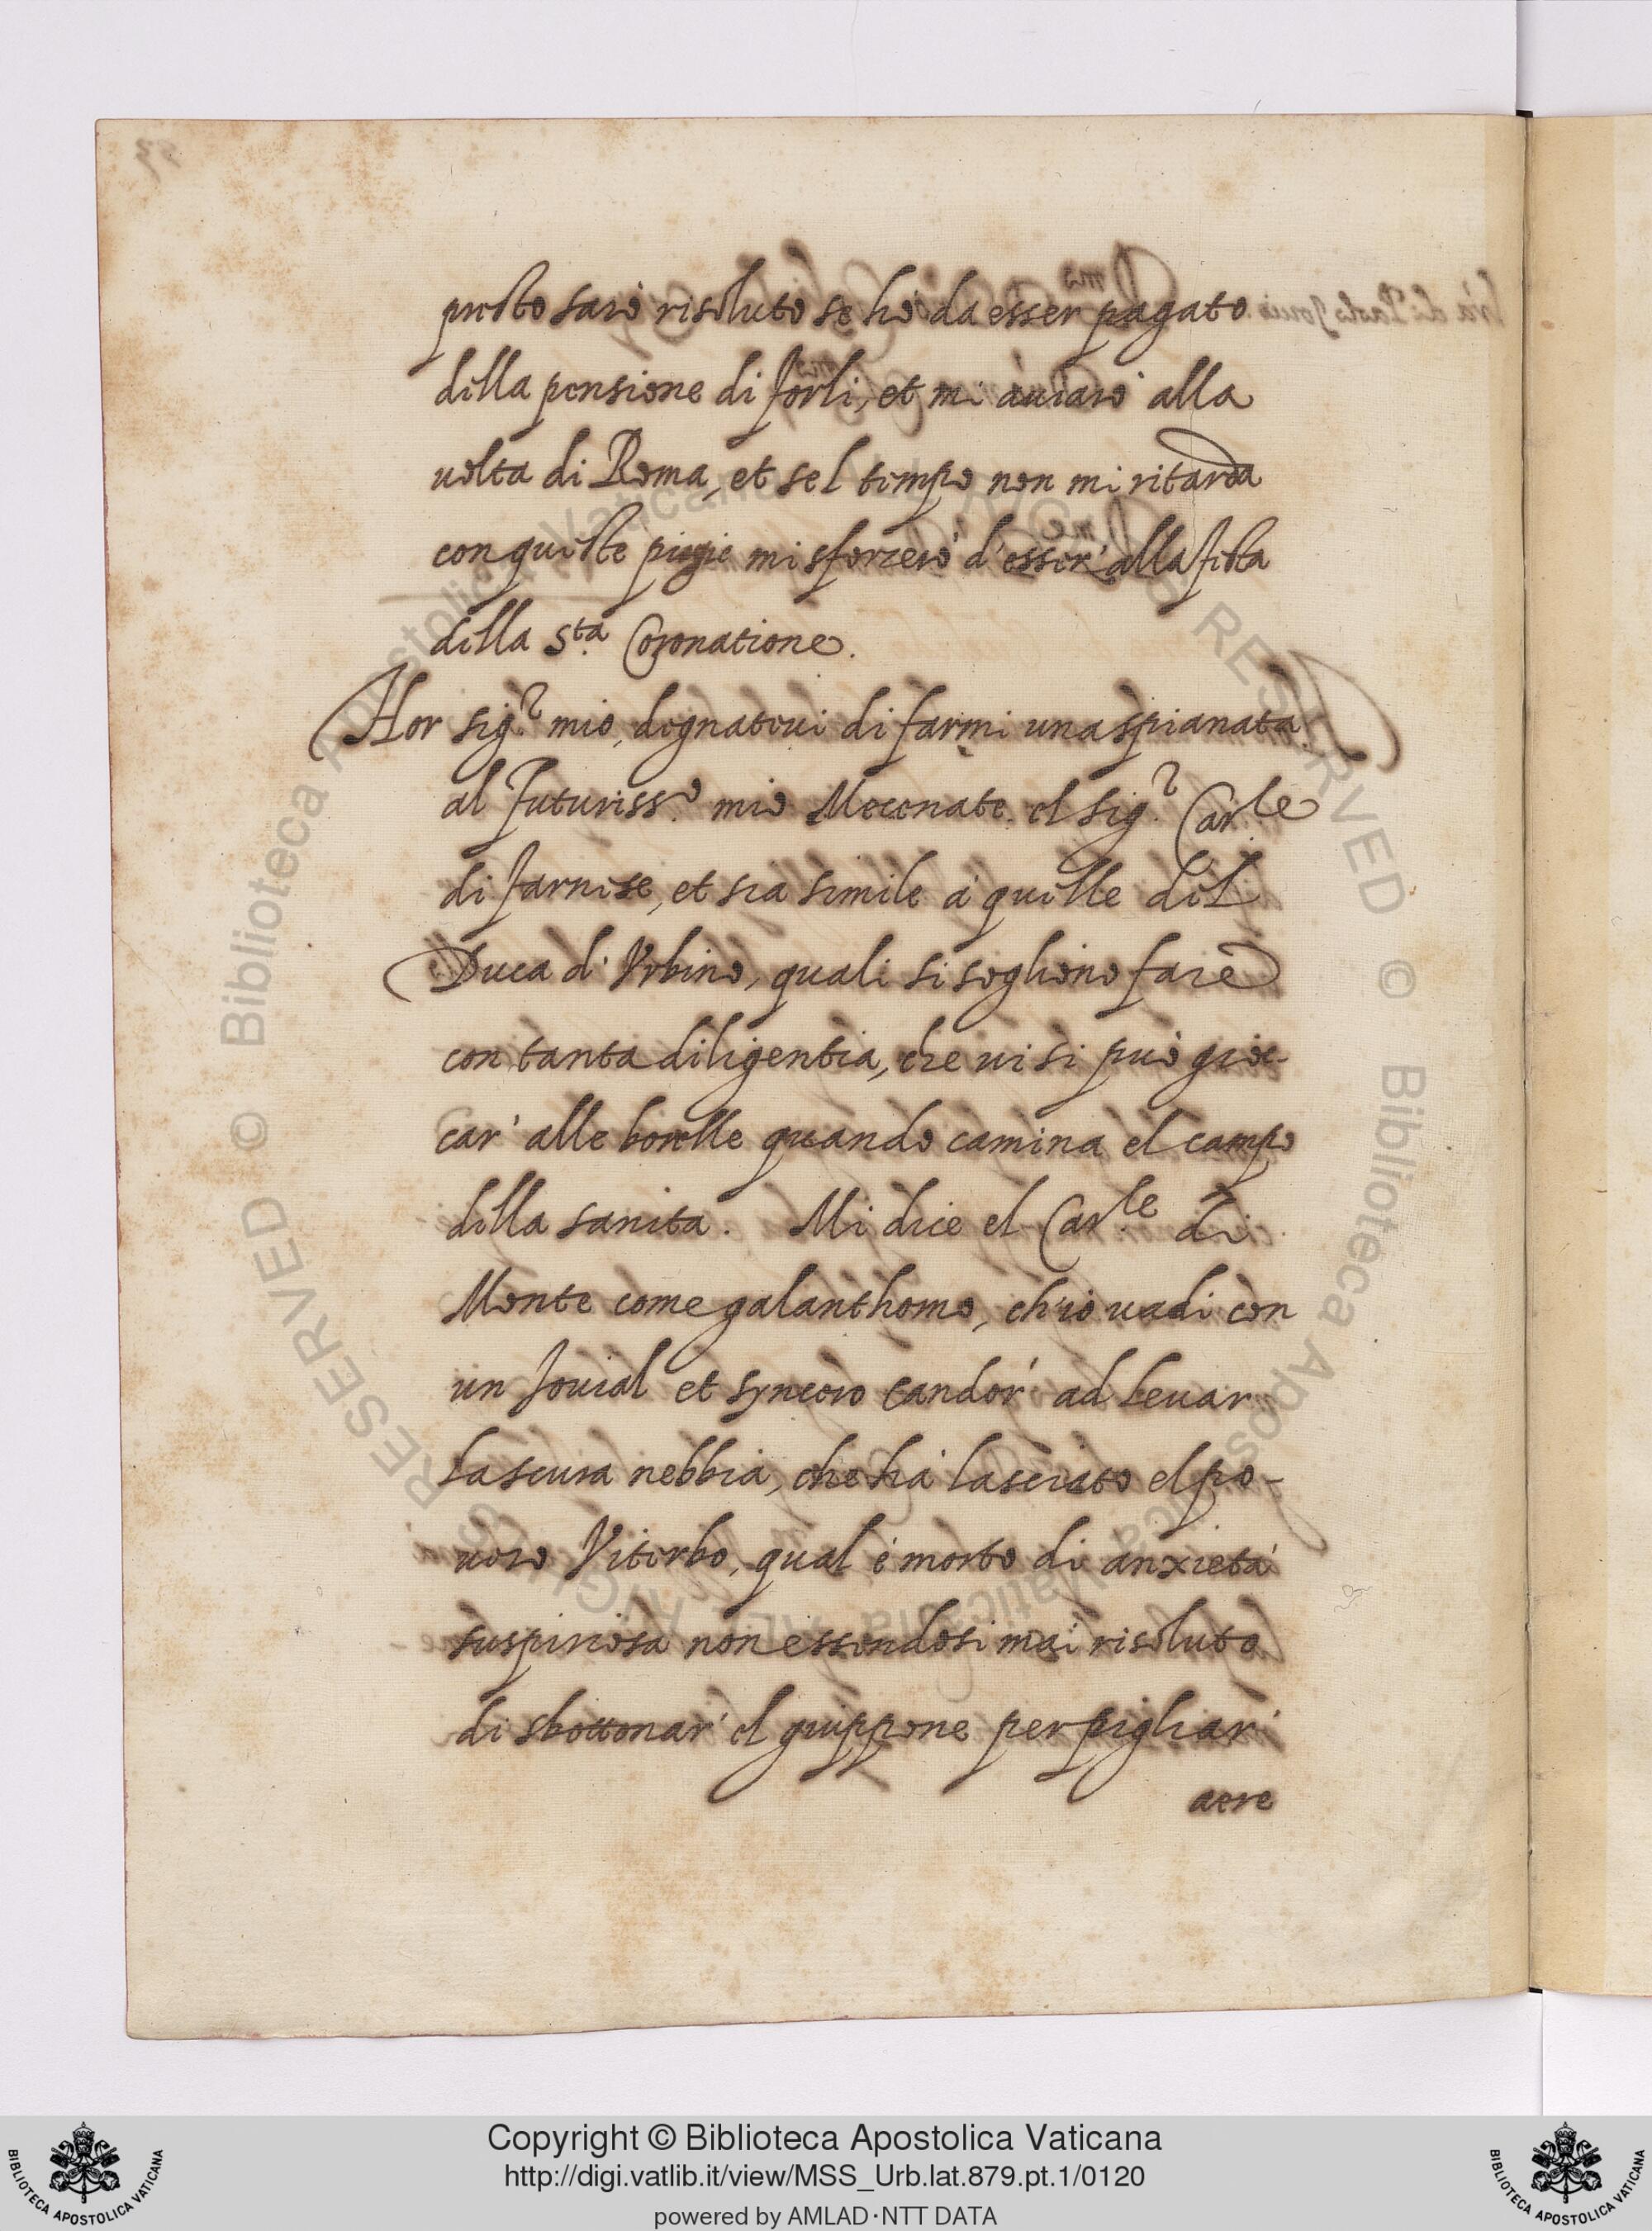 presto sarò risoluto se hò da esser pagato
della pensione di forli, et mi auiarò alla
uolta di Roma, et se l tempo non mi ritarda
con queste piogie mi sforzerò d'esser' alla festa
della S.ta Coronatione.
Hor sig.r mio, degnateui di farmi una spianata
al futuriss.o mio Mecenate el sig.r Car.le
di farnese, et sia simile à quelle del
Duca d'Vrbino, quali si sogliono fare
con tanta diligentia, che ui si può gioc-
car' alle borelle quando camina el campo
della sanità. Mi dice el Car.le di
Monte come galanthomo, ch'io uadi con
un Jouial et syncero candor' ad leuar
la scura nebbia, che hà lasciato el po-
uero Viterbo, qual è morto di anxietà
suspiriosa non essendosi mai risoluto
di sbottonar' el giuppone per pigliar'
aere
Copyright © Biblioteca Apostolica Vaticana
http://digi.vatlib.it/view/MSS_Urb.lat.879.pt.1/0120
powered by AMLAD·NTT DATA
BIBLIOTECA APOSTOLICA VATICANA
BIBLIOTECA APOSTOLICA VATICANA